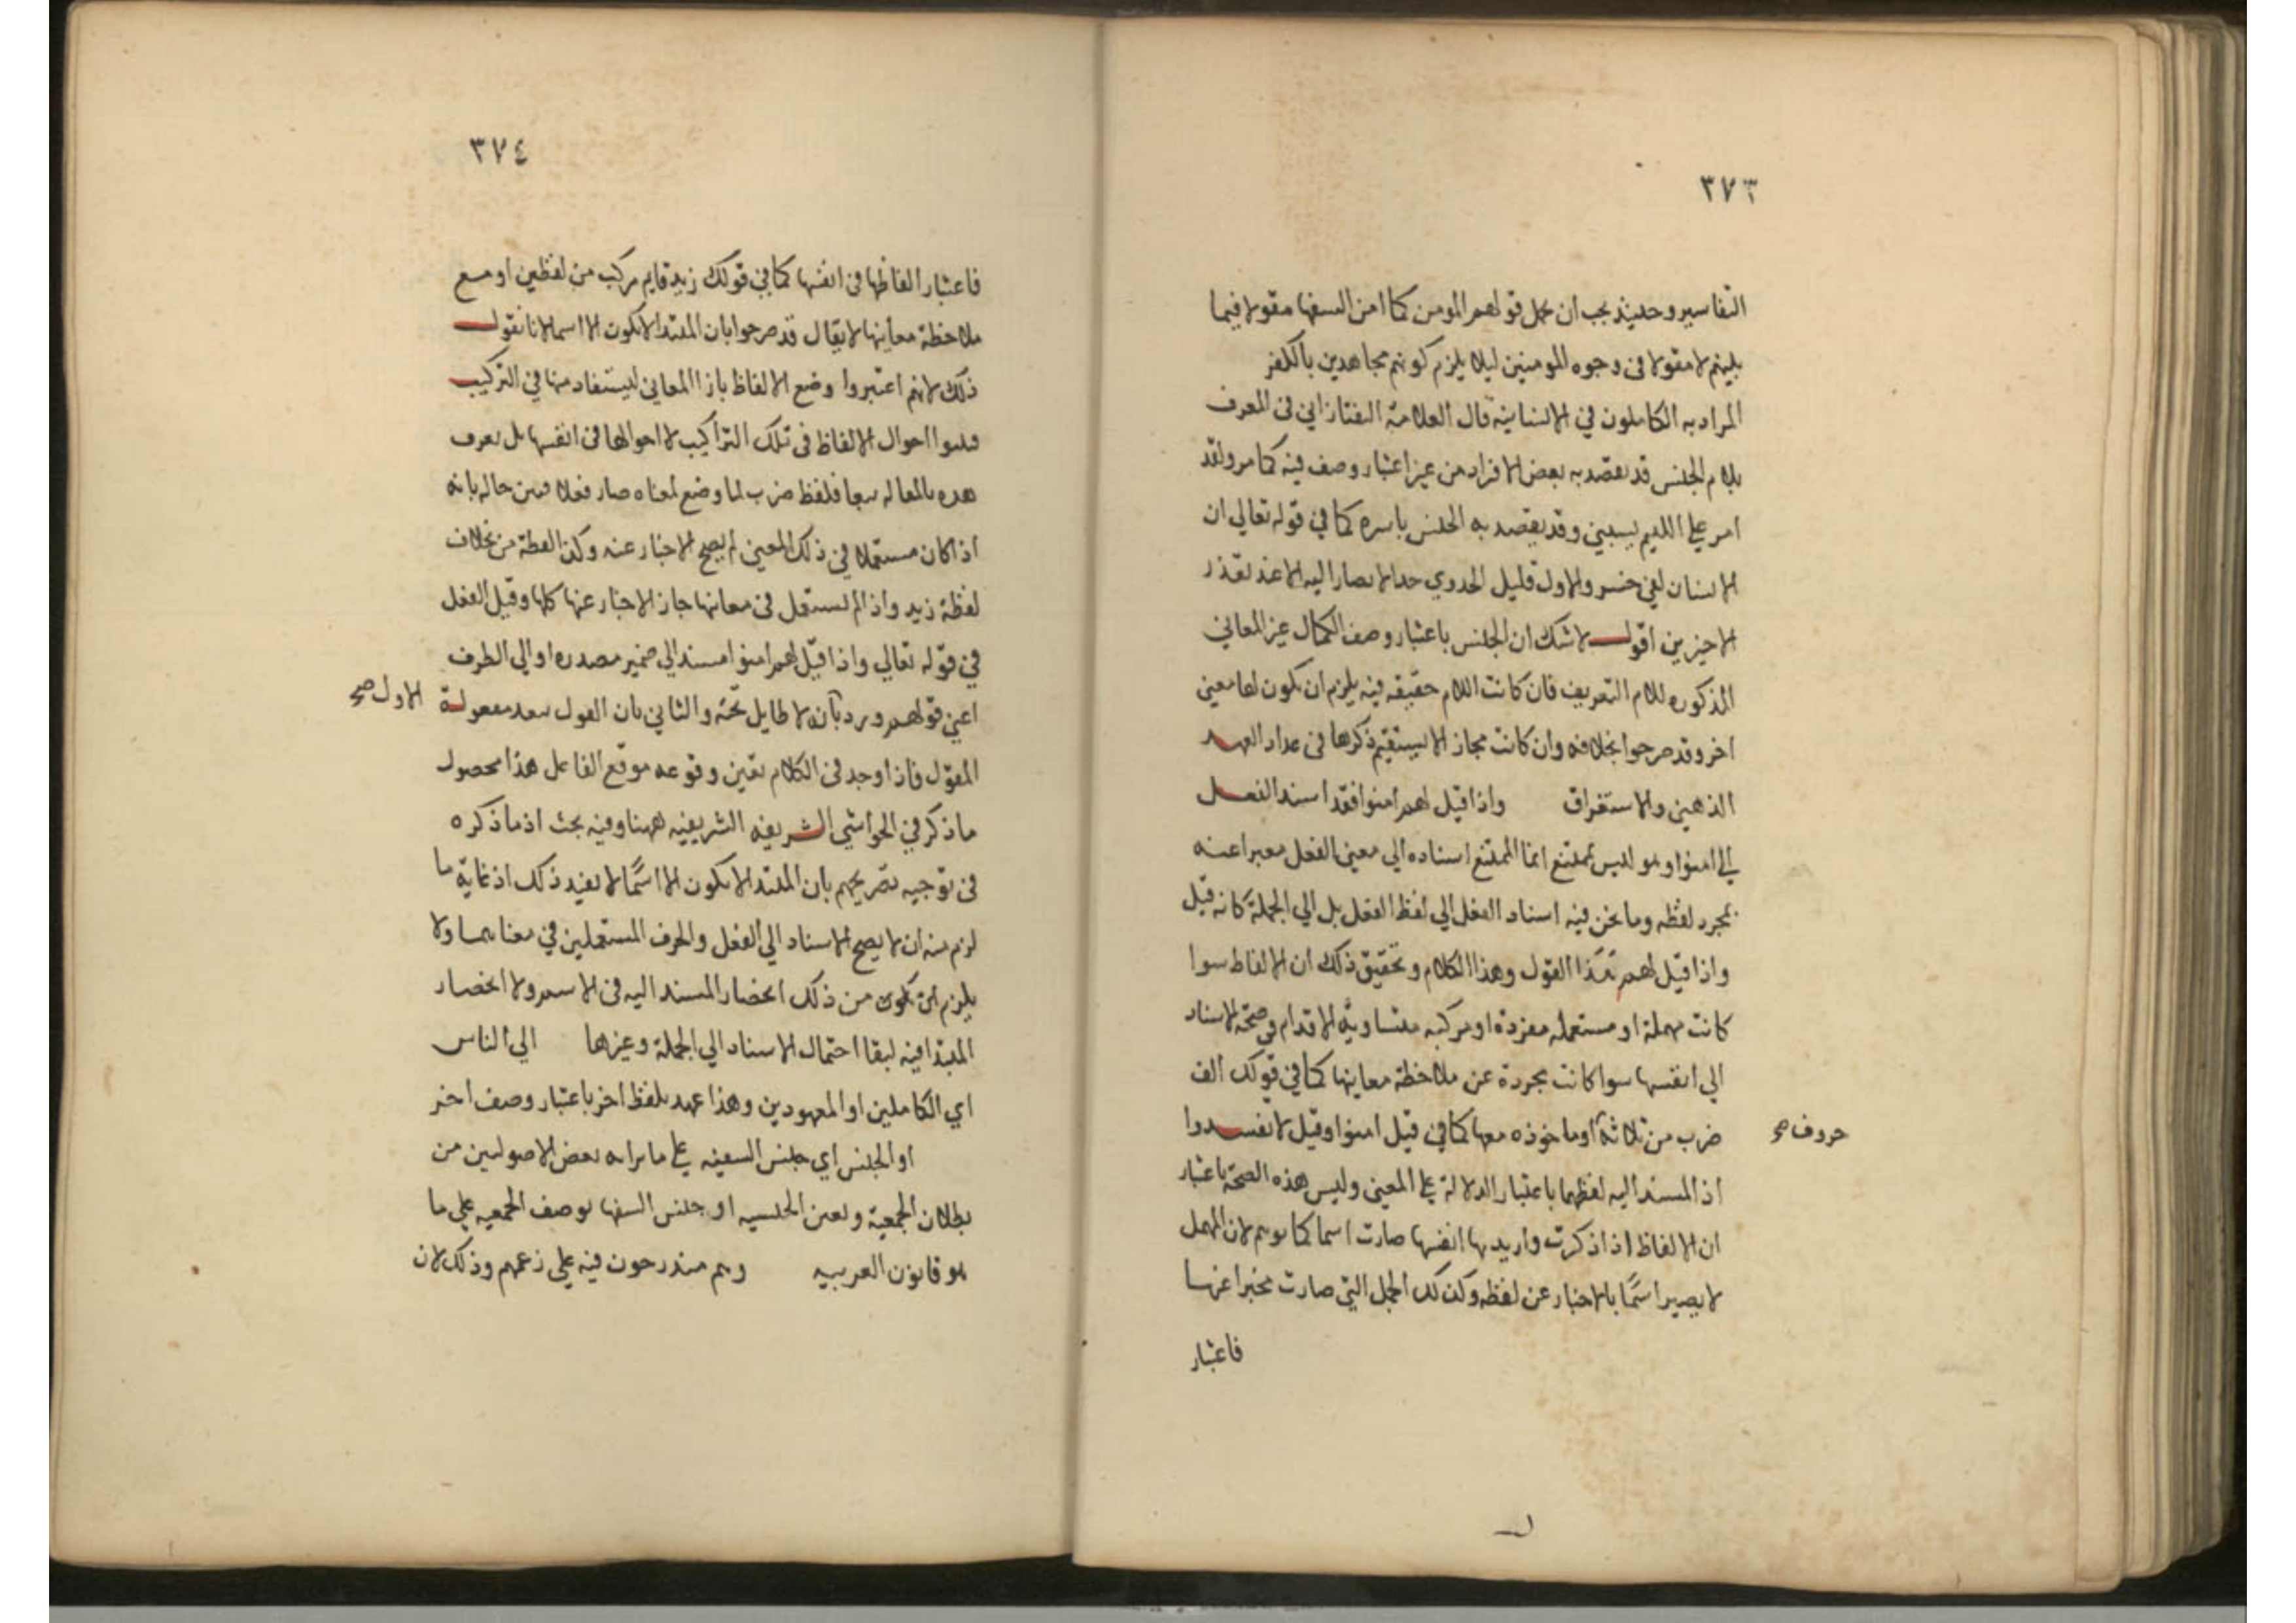 ٣٧٣
التفاسير وحينئذ يجب ان يحمل قولهم انومن كما امن السفها مقولا فيما
بينهم لا مقولا فى وجوه المومنين ليلا يلزم كونهم مجاهدين بالكفر
المراد به الكاملون في الانسانية قال العلامة التفتازانى فى المعرف
بلام الجنس قد يقصد به بعض الافراد من غير اعتبار وصف فيه كما مر ولقد
امر علي اللئيم يسبني وقد يقصد به الجنس باسره كما في قوله تعالي ان
الانسان لفي خسر والاول قليل الجدوي جدا لا يصار اليه الا عند تعذر
الاخيرين اقول لا شك ان الجنس باعتبار وصف الكمال غير المعاني
المذكوره للام التعريف فان كانت اللام حقيقه فيه يلزم ان يكون لها معني
اخر وقد صرحوا بخلافه وان كانت مجازا لا يستقيم ذكرها فى عداد العهد
الذهني والاستغراق واذا قيل لهم امنوا فقد اسند الفعل
الي امنوا وهو ليس بممتنع انما الممتنع اسناده الي معني الفعل معبرا عنه
بمجرد لفظه وما نحن فيه اسناد الفعل الي لفظ الفعل بل الي الجملة كانه قيل
واذا قيل لهم هذا القول وهذا الكلام وتحقيق ذلك ان الالفاظ سوا
كانت مهملة او مستعمله مفردة او مركبه متساوية الاقدام في صحة الاسناد
الي انفسها سوا كانت مجردة عن ملاحظة معاينها كما في قولك الف
ضرب من ثلاثة او ماخوذه معها كما في قيل امنوا وقيل لا تفسدوا
حروف صح
اذ المسند اليه لفظهما باعتبار الدلالة علي المعني وليس هذه الصحة باعتبار
ان الالفاظ اذا ذكرت واريد بها انفسها صارت اسما كما توهم لان المهمل
لا يصير اسمًا بالاخبار عن لفظه وكذلك الجمل التي صارت مخبرا عنها
فاعتبار
٣٧٤
فاعتبار الفاظها فى انفسها كما في قولك زيد قايم مركب من لفظين او مع
ملاحظة معاينها لا يقال قد صرحوا بان المبتدا لا يكون الا اسما لانا نقول
ذلك لانهم اعتبروا وضع الالفاظ بازا المعاني ليستفاد منها في التركيب
فبينوا احوال الالفاظ فى تلك التراكيب لا احوالها فى انفسها بل يعرف
هذه بالمقاله تبعا فلفظ ضرب لما وضع لمعناه صار فعلا فبين حاله بانه
اذا كان مستعملا في ذلك المعني لم يصح الاخبار عنه وكذا لفظة من بخلاف
لفظة زيد واذا لم تستعمل فى معانيها جاز الاخبار عنها كلها وقيل الفعل
في قوله تعالي واذا قيل لهم امنوا مسند الي ضمير مصدره او الي الظرف
اعني قوله لهم ورد بانه لا طايل تحته والثاني بان القول يتعد بمفعوله
الاول صح
المقول فاذا وجد فى الكلام تعين وقوعه موقع الفاعل هذا محصول
ما ذكر في الحواشي الشريفه الشريفيه ههنا وفيه بحث اذ ما ذكره
فى توجيه تصريحهم بان المبتدا لا يكون الا اسمًا لا يفيد ذلك اذ غاية ما
لزم منه ان لا يصح الاسناد الي الفعل والحرف المستعملين في معناهما ولا
يلزم ان يكون من ذلك انحصار المسند اليه فى الاسم ولا انحصار
المبتدا فيه لبقا احتمال الاسناد الي الجملة وغيرها الي الناس
اي الكاملين او المعهودين وهذا عهد بلفظ اخر باعتبار وصف اخر
او الجنس اي جنس السفيه علي ما يراه بعض الاصوليين من
بطلان الجمعية وتعين الجنسيه او جنس السفها بوصف الجمعيه علي ما
هو قانون العربيه وهم مندرجون فيه علي زعمهم وذلك لان